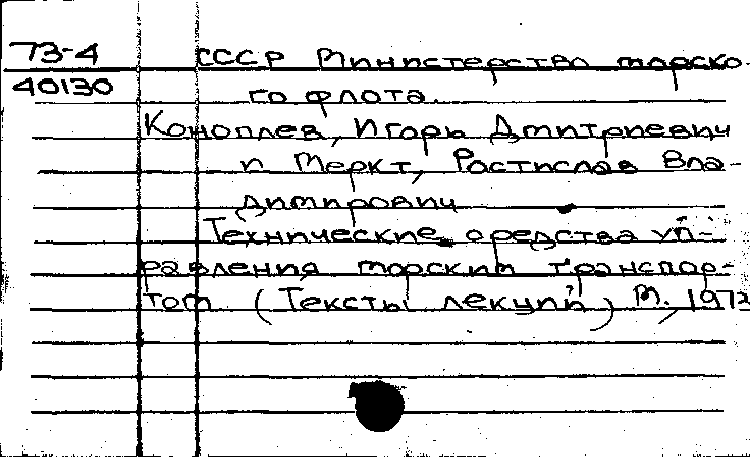 73-4 СССР Министерство морско-
40130 го флота.
Коноплев, Игорь Дмитриевич
и Меркт, Ростислав Вла-
димирович
Технические средства уп-
равления морским транспор-
том (Тексты лекций) М., 1972